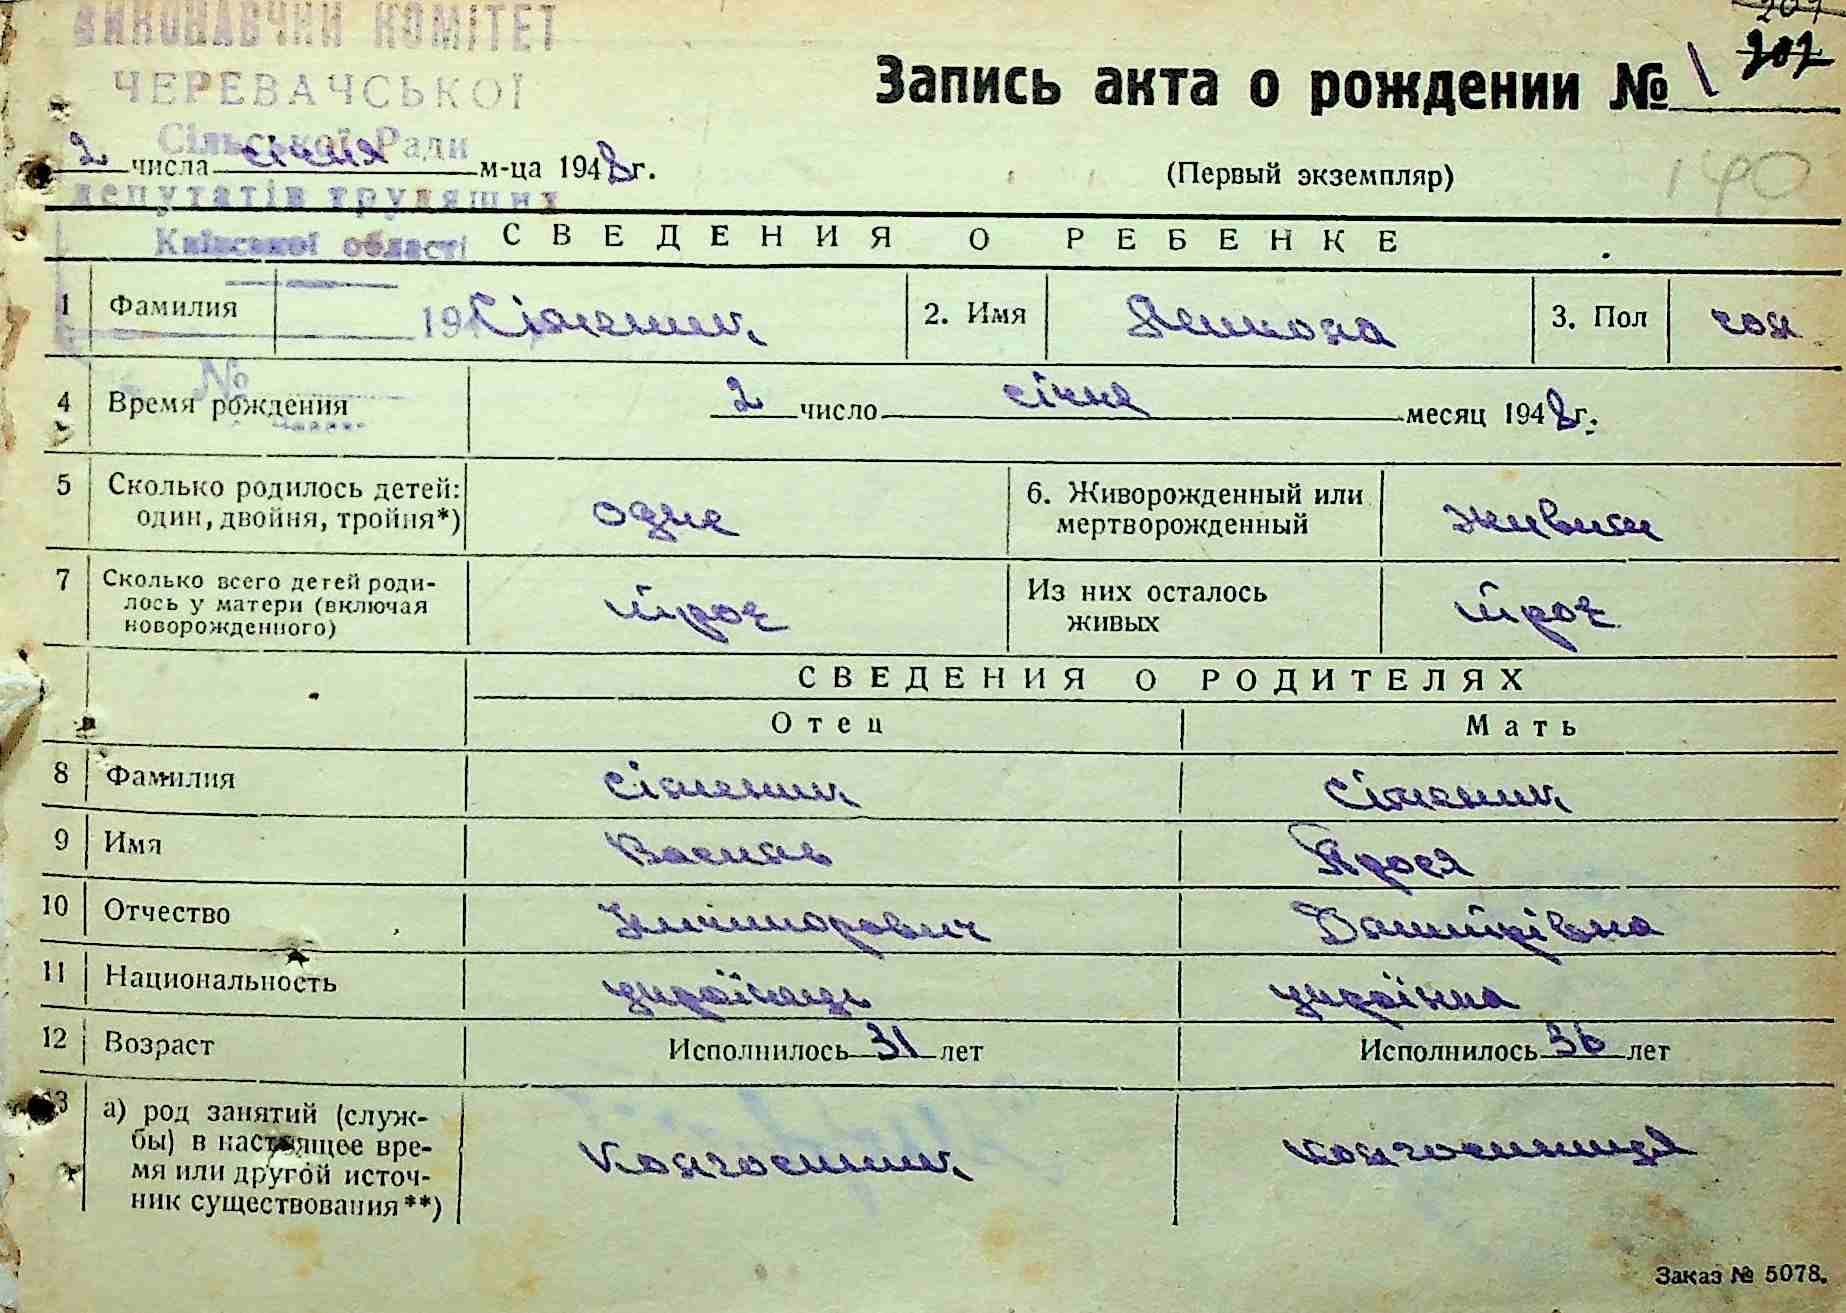 ВИКОНАВЧИЙ КОМІТЕТ
ЧЕРЕВАЧСЬКОЇ
Сільської Ради
депутатів трудящих
Київської області
19
№
207
207
Запись акта о рождении № 1
2 числа січня м-ца 1948 г.
(Первый экземпляр)
190
СВЕДЕНИЯ О РЕБЕНКЕ
1 Фамилия Сіменик 2. Имя 3. Пол
4 Время рождения 2 число січня месяц 1948 г.
5 Сколько родилось детей: один, двойня, тройня*) одне 6. Живорожденный или мертворожденный живим
7 Сколько всего детей родилось у матери (включая новорожденного) троє Из них осталось живых троє
СВЕДЕНИЯ О РОДИТЕЛЯХ
Отец Мать
8 Фамилия Сіменик Сіменик
9 Имя Василь
10 Отчество Дмитрівна
11 Национальность українець українка
12 Возраст Исполнилось 31 лет Исполнилось 36 лет
13 а) род занятий (службы) в настоящее время или другой источник существования**) Колгоспник колгоспниця
Заказ № 5078.